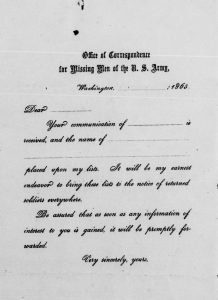 Office of Correspondence
for Missing Men of the U. S. Army,
Washington, 1865
Dear
Your communication of is
received, and the name of
placed upon my lists. It will be my earnest
endeavor to bring these lists to the notice of returned
soldiers everywhere.
Be assured that as soon as any information of
interest to you is gained, it will be promptly for-
warded.
Very sincerely, yours.